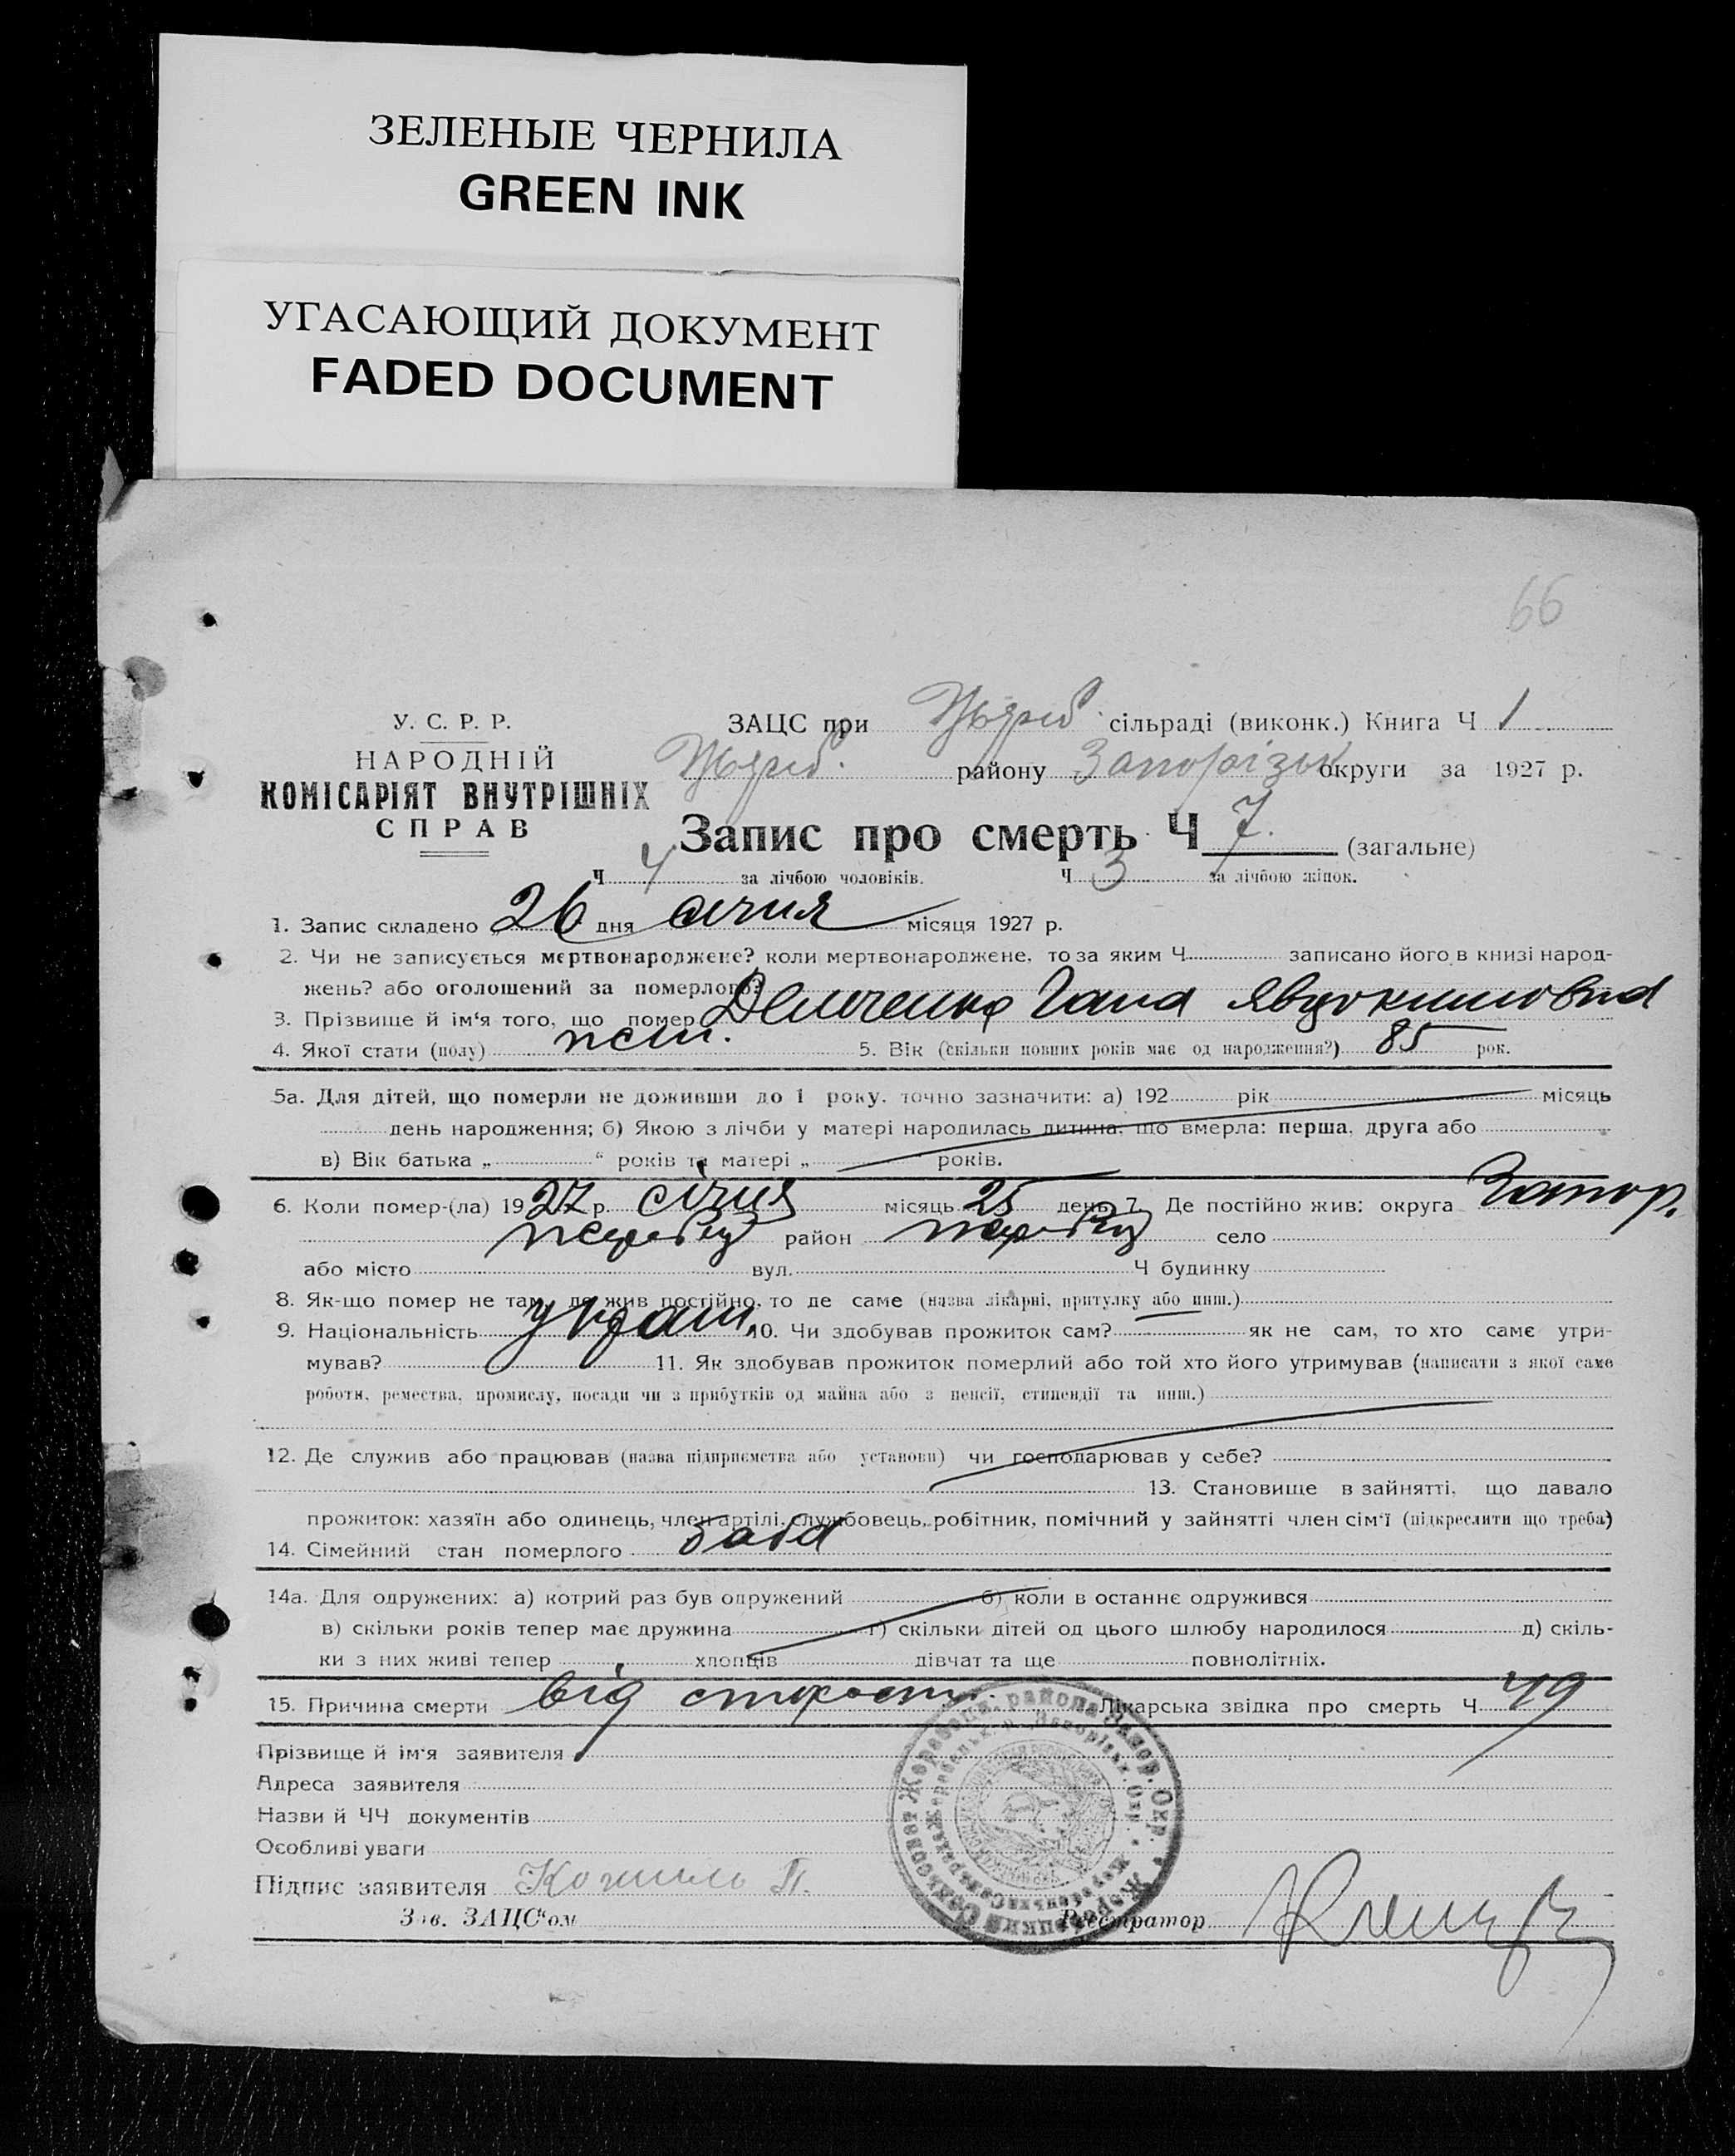 ЗЕЛЕНЫЕ ЧЕРНИЛА
GREEN INK
УГАСАЮЩИЙ ДОКУМЕНТ
FADED DOCUMENT
66
У. С. Р. Р.
НАРОДНІЙ
КОМІСАРІЯТ ВНУТРІШНІХ
СПРАВ
ЗАЦС при Жереб сільраді (виконк.) Книга Ч 1
Жереб. району Запорізьк округи за 1927 р.
Запис про смерть Ч 7. (загальне)
Ч 4 за лічбою чоловіків. Ч 3 за лічбою жінок.
1. Запис складено „26 дня січня місяця 1927 р.
2. Чи не записується мертвонароджене? коли мертвонароджене, то за яким Ч записано його в книзі народ-
жень? або оголошений за померлого?
3. Прізвище й ім'я того, що помер Демченко Гана Явдокимовна
4. Якої стати (полу) жен. 5. Вік (скільки повних років має од народження?) 85 рок.
5а. Для дітей, що померли не доживши до 1 року. точно зазначити: а) 192 рік місяць
день народження; б) Якою з лічби у матері народилась дитина, що вмерла: перша, друга або
в) Вік батька „ “ років та матері „ років.
6. Коли помер-(ла) 1927 р. січня місяць 25 день 7. Де постійно жив: округа Запор.
Жеребец район Жеребец село
або місто вул. Ч будинку
8. Як-що помер не там, де жив постійно, то де саме (назва лікарні, притулку або инш.)
9. Національність україн. 10. Чи здобував прожиток сам? як не сам, то хто саме утри-
мував? 11. Як здобував прожиток померлий або той хто його утримував (написати з якої саме
роботи, ремества, промислу, посади чи з прибутків од майна або з пенсії, стипендії та инш.)
12. Де служив або працював (назва підприємства або установи) чи господарював у себе?
13. Становище в зайнятті, що давало
прожиток: хазяїн або одинець, член артілі, службовець, робітник, помічний у зайнятті член сім'ї (підкреслити що треба)
14. Сімейний стан померлого баба
14а. Для одружених: а) котрий раз був одружений б) коли в останнє одружився
в) скільки років тепер має дружина г) скільки дітей од цього шлюбу народилося д) скіль-
ки з них живі тепер хлопців дівчат та ще повнолітніх.
15. Причина смерти від старости. Лікарська звідка про смерть Ч 49
Прізвище й ім'я заявителя
Адреса заявителя
Назви й ЧЧ документів
Особливі уваги
Підпис заявителя П.
Зав. ЗАЦС'ом Реєстратор